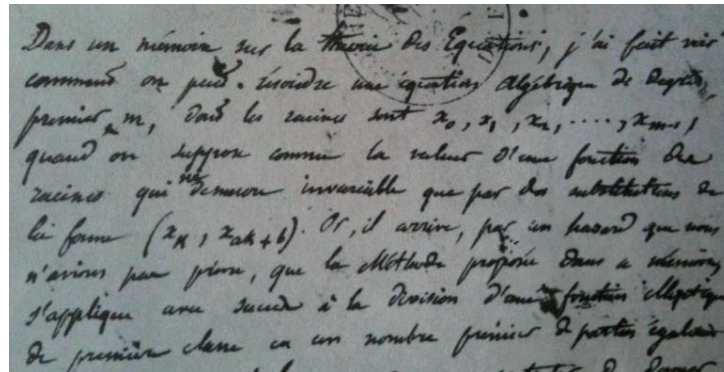 Dans un mémoire sur la théorie des Équations, j'ai fait voir
comment on peut résoudre une équation algébrique de degré
premier m, dont les racines sont x₀, x₁, x₂, ....., xₘ₋₁,
quand on suppose connue la valeur d'une fonction des
racines qui ne demeure invariable que par des substitutions de
la forme (xₖ, xₐₖ₊b). Or, il arrive, par un hasard que nous
n'avions pas prévu, que la Méthode proposée dans ce mémoire
s'applique avec succès à la division d'une fonction elliptique
de première classe en un nombre premier de parties égales
de